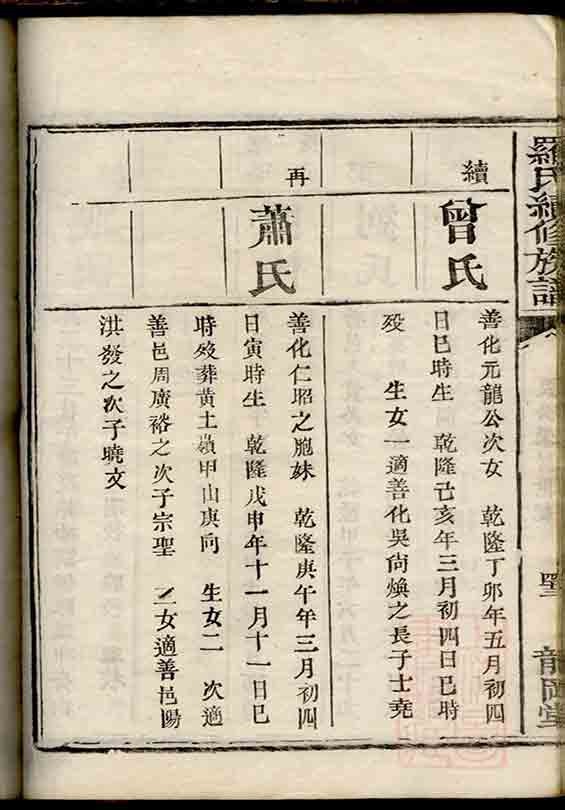 羅氏續修族譜
龍岡堂
續
曾氏
善化元龍公次女　乾隆丁卯年五月初四
日巳時生　乾隆己亥年三月初四日巳時
歿　生女一適善化吳尙煥之長子士堯
再
蕭氏
善化仁昭之胞妹　乾隆庚午年三月初四
日寅時生　乾隆戊申年十一月十一日巳
時歿葬黃土嶺甲山庚向　生女二　次適
善邑周廣裕之次子宗聖　二女適善邑陽
淇發之次子曉文